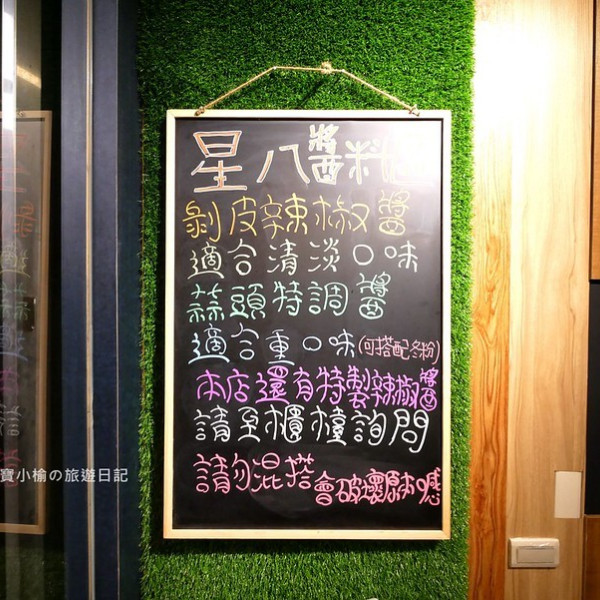 星八醬料
剝皮辣椒醬
適合清淡口味
蒜頭特調醬
適合重口味(可搭配冬粉)
本店還有特製辣椒醬
請至櫃檯詢問
請勿混搭會破壞原本口感
寶小榆の旅遊日記